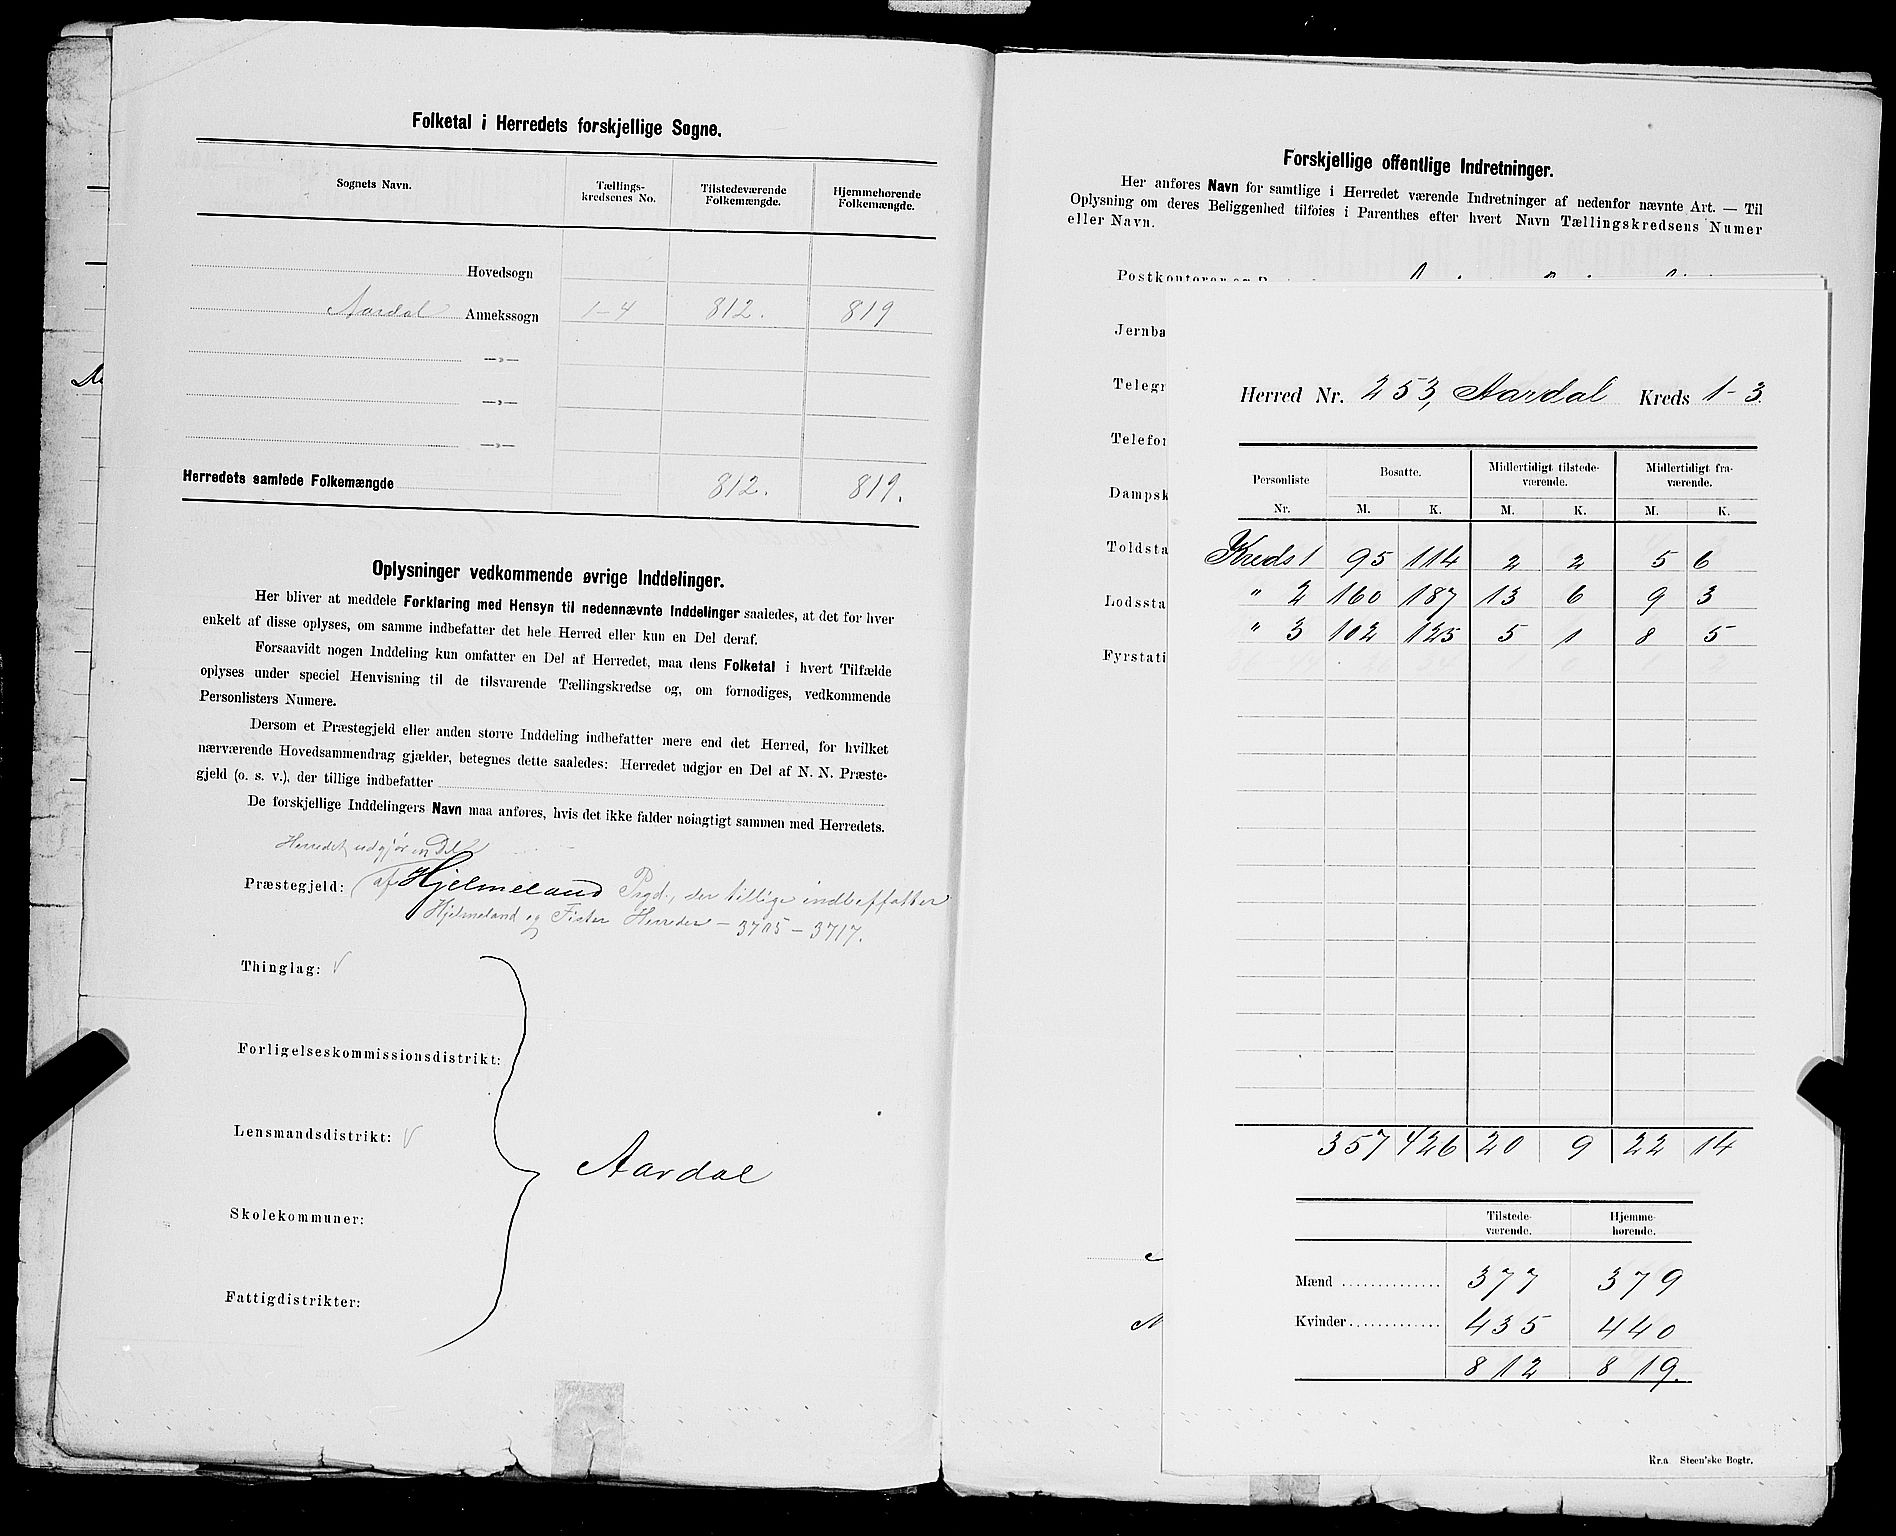 Folketal i Herredets forskjellige Sogne.
Sognets Navn. Tællings- Tilstedeværende Hjemmehørende
kredsenes No. Folkemængde. Folkemængde.
Hovedsogn
Aardal Annekssogn 1-4 812. 819
—»—
—»—
—»—
Herredets samlede Folkemængde 812. 819.
Oplysninger vedkommende øvrige Inddelinger.
Her bliver at meddele Forklaring med Hensyn til nedennævnte Inddelinger saaledes, at det for hver
enkelt af disse oplyses, om samme indbefatter det hele Herred eller kun en Del deraf.
Forsaavidt nogen Inddeling kun omfatter en Del af Herredet, maa dens Folketal i hvert Tilfælde
oplyses under speciel Henvisning til de tilsvarende Tællingskredse og, om fornødiges, vedkommende
Personlisters Numere.
Dersom et Præstegjeld eller anden større Inddeling indbefatter mere end det Herred, for hvilket
nærværende Hovedsammendrag gjælder, betegnes dette saaledes: Herredet udgjør en Del af N. N. Præste-
gjeld (o. s. v.), der tillige indbefatter
De forskjellige Inddelingers Navn maa anføres, hvis det ikke falder nøiagtigt sammen med Herredets.
Herredet udgjør en Del
Præstegjeld: af Hjelmeland Prgd., der tillige indbefatter
Hjelmeland og Fister Herreder – 3705 – 3717.
Thinglag: √
Forligelseskommissionsdistrikt:
Lensmandsdistrikt: √
Aardal
Skolekommuner:
Fattigdistrikter:
Forskjellige offentlige Indretninger.
Her anføres Navn for samtlige i Herredet værende Indretninger af nedenfor nævnte Art. — Til
Oplysning om deres Beliggenhed tilføies i Parenthes efter hvert Navn Tællingskredsens Numer
eller Navn.
Postkontorer og
Jernba
Telegr
Telefon
Dampsk
Toldsta
Lodssta
Fyrstati
Herred Nr. 253, Aardal Kreds 1-3.
Personliste Bosatte. Midlertidigt tilstede- Midlertidigt fra-
værende. værende.
Nr. M. K. M. K. M. K.
Kreds 1 95 114 2 2 5 6
" 2 160 187 13 6 9 3
" 3 102 125 5 1 8 5
357 426 20 9 22 14
Tilstede- Hjemme-
værende. hørende.
Mænd 377 379
Kvinder 435 440
812 819.
Kr.a Steen'ske Bogtr.